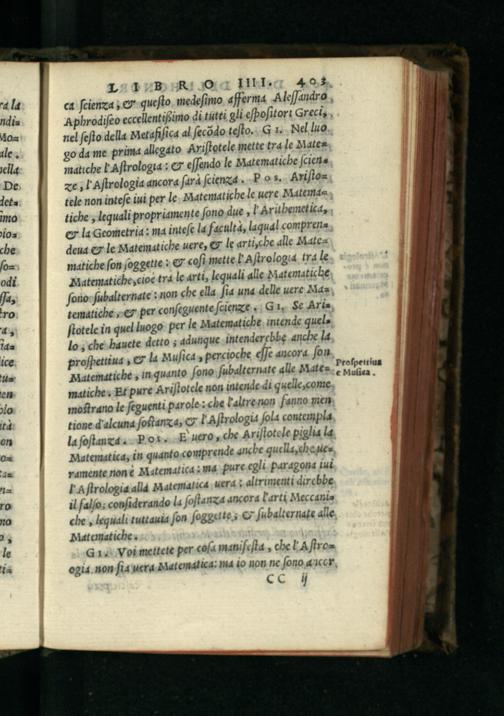 LIBRO IIII. 403
ca scienza, & questo medesimo afferma Alessandro
Aphrodiseo eccellentissimo di tutti gli espositori Greci,
nel sesto della Metafisica al secõdo testo. GI. Nel luo
go da me prima allegato Aristotele mette tra le Mate-
matiche l'Astrologia: & essendo le Matematiche scien-
ze, l'Astrologia ancora sarà scienza. POS. Aristo-
tele non intese iui per le Matematiche le uere Matema-
tiche, lequali propriamente sono due, l'Arithmetica,
& la Geometria: ma intese la facultà, laqual compren-
deua & le Matematiche uere, & le arti, che alle Mate-
matiche son soggette: & così mette l'Astrologia tra le
Matematiche, cioè tra le arti, lequali alle Matematiche
sono subalternate: non che ella sia una delle uere Ma-
tematiche, & per conseguente scienze. GI. Se Ari-
stotele in quel luogo per le Matematiche intende quel-
lo, che hauete detto; adunque intenderebbe anche la
prospettiua, & la Musica, percioche esse ancora son
Matematiche, in quanto sono subalternate alle Mate-
matiche. Et pure Aristotele non intende di quelle, come
mostrano le seguenti parole: che l'altre non fanno men
tione d'alcuna sostanza, & l'Astrologia sola contempla
la sostanza. POS. E' uero, che Aristotele piglia la
Matematica, in quanto comprende anche quella, che ue-
ramente non è Matematica: ma pure egli paragona iui
l'Astrologia alla Matematica uera: altrimenti direbbe
il falso: considerando la sostanza ancora l'arti Meccani-
che, lequali tuttauia son soggette, & subalternate alle
Matematiche.
GI. Voi mettete per cosa manifesta, che l'Astro-
ogia non sia uera Matematica: ma io non ne sono ancor
CC ij
Prospettiua
e Musica.